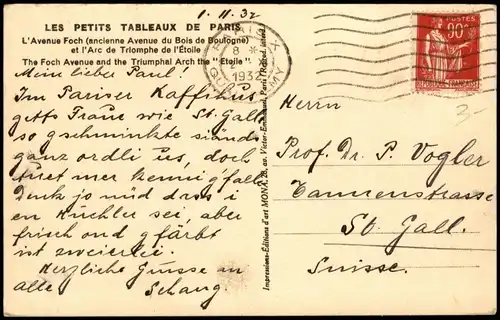 1. 11. 32
LES PETITS TABLEAUX DE PARIS
L'Avenue Foch (ancienne Avenue du Bois de Boulogne)
et l'Arc de Triomphe de l'Étoile
The Foch Avenue and the Triumphal Arch the "Etoile"
Mein lieber Paul!
Im Pariser Kaffihus
getts Fraue wie St. Gall
so gschminkte siând
ganz ordli us, doch
tuet mer kennig'falle
Denk jo nüd dass i
en Küchler sei, aber
frisch ond gfärbt
ist zweierlei.
Herzliche Grüsse an
alle Schang.
Impressions-Éditions d'art MONA, 28, av. Victor-Emmanuel, Paris
PARIS X
8
1932
POSTES
90c
Herrn
Prof. Dr. P. Vogler
Tannenstrasse
St. Gall.
Suisse.
3-